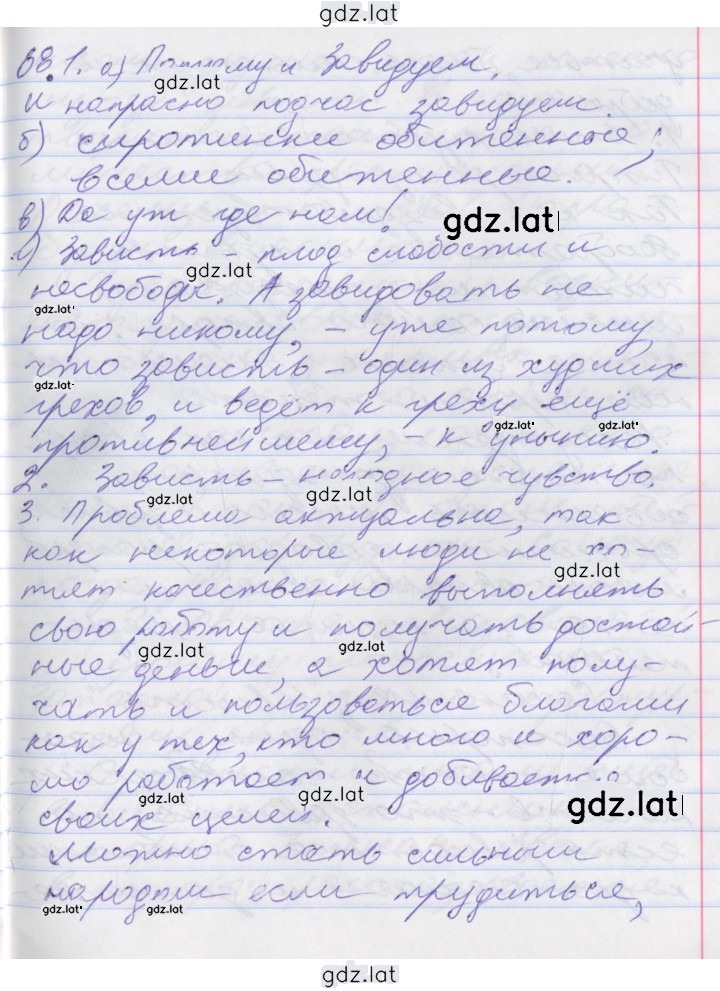 gdz.lat
68.1. а) Потому и завидуем,
gdz.lat
и напрасно подчас завидуем.
б) сиротинские обиженные;
всеми обиженные.
в) Да уж где нам!
gdz.lat
г) Зависть – плод слабости и
gdz.lat
несвободы. А завидовать не
gdz.lat
надо никому, – уже потому,
gdz.lat
что зависть – один из худших
gdz.lat
грехов, и ведёт к греху ещё
gdz.lat gdz.lat
противнейшему, – к унынию.
2. Зависть – народное чувство.
gdz.lat gdz.lat
3. Проблема актуальна, так
как некоторые люди не хо-
gdz.lat
тят качественно выполнять
свою работу и получать достой-
gdz.lat gdz.lat
ные деньги, а хотят полу-
чать и пользоваться благами
как у тех, кто много и хоро-
шо работает и добивается
gdz.lat gdz.lat gdz.lat
своих целей.
Можно стать сильным
народом если трудиться,
gdz.lat gdz.lat
gdz.lat